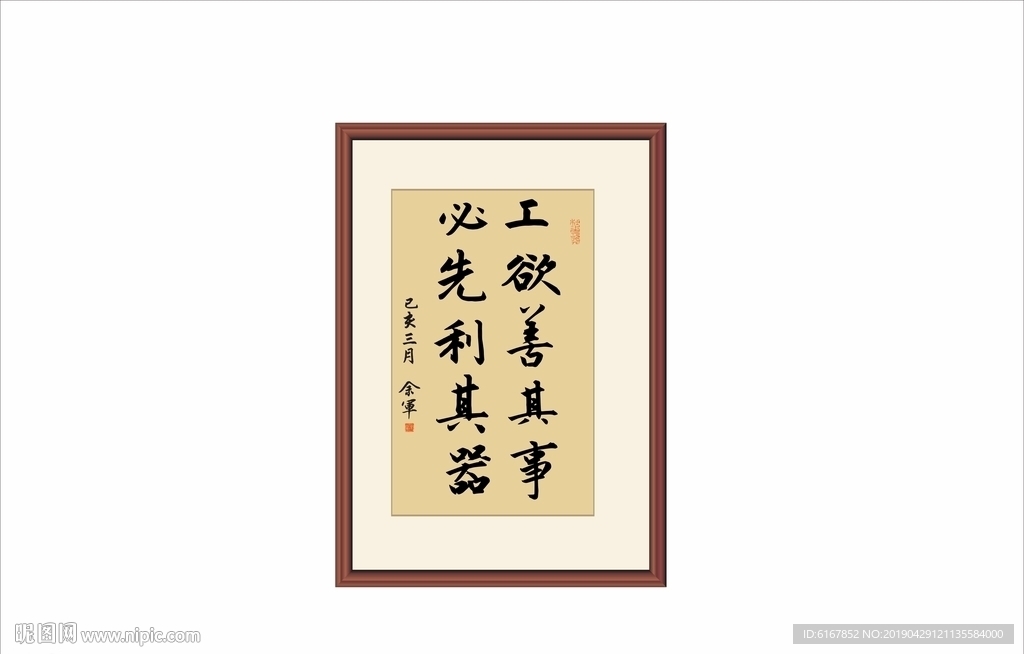 工欲善其事
必先利其器
己亥三月 余軍
昵图网 www.nipic.com
ID:6167852 NO:20190429121135584000